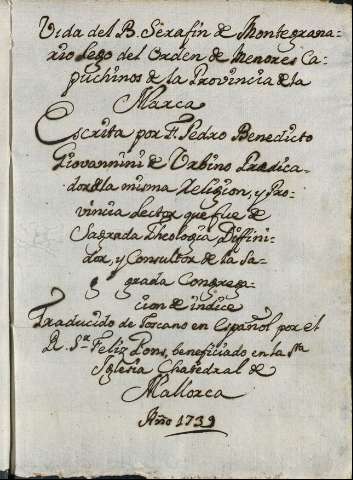 Vida del B. Serafin de Montegrana-
rio lego del Orden de Menores Ca-
puchinos de la Provincia de la
Marca
Escrita por F. Pedro Benedicto
Giovannini de Urbino Predica-
dor de la misma Religion, y Pro-
vincia Lector que fue de
Sagrada Theologia Diffini-
dor, y Consultor de la Sa-
grada Congrega-
cion de indice
Traducido de Toscano en Español por el
R. Sr. Feliz Pons, beneficiado en la Sta
Iglesia Chatedral de
Mallorca
Año 1739